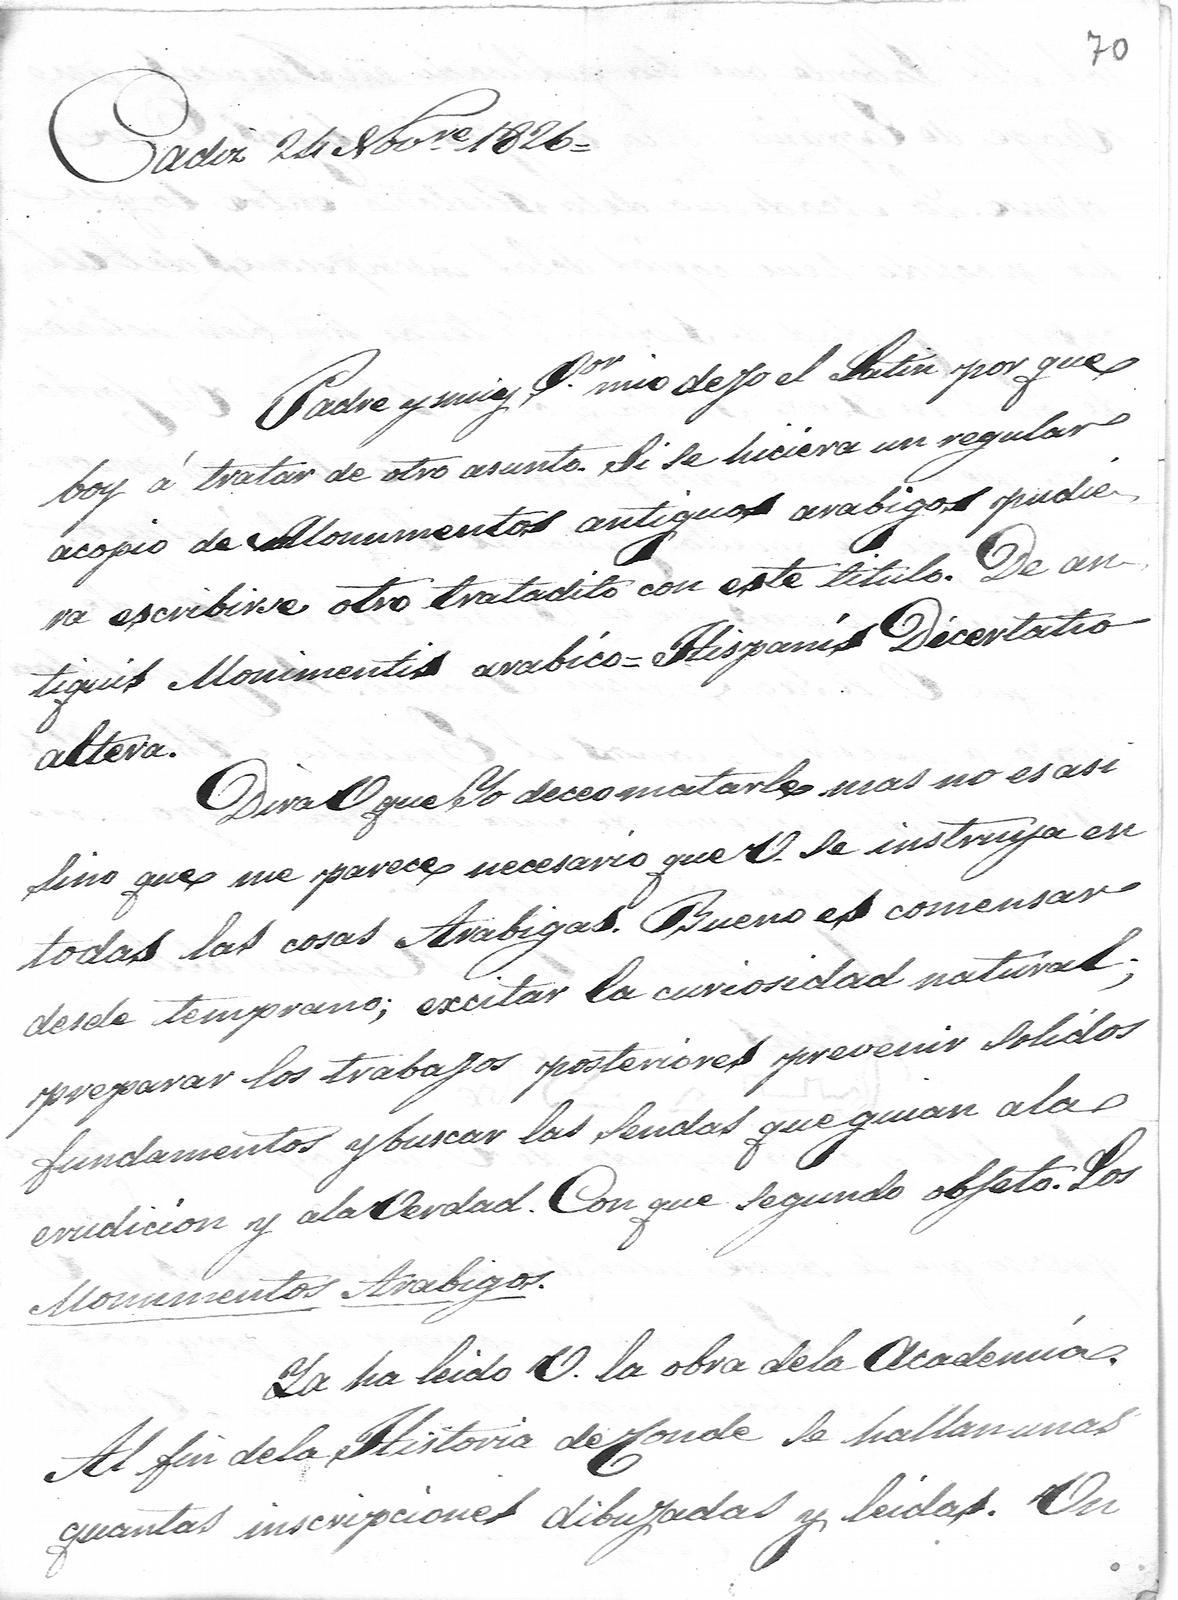 70
Cadiz 24 Novre. 1826=
Padre y muy Sor. mio dejo el Latin por que
boy á tratar de otro asunto. Si se hiciera un regular
acopio de Monumentos antiguos arabigos pudie-
ra escribirse otro tratadito con este titulo. De an-
tiquis Monimentis arabico=Hispanis Dicertatio
altera.
Dira V que Yo deceo matarle mas no es asi
sino que me parece necesario que V. se instruya en
todas las cosas Arabigas. Bueno es comensar
desde temprano; excitar la curiosidad natural;
preparar los trabajos posteriores prevenir solidos
fundamentos y buscar las sendas que guian a la
erudicion y ala Verdad. Con que segundo objeto. Los
Monumentos Arabigos.
Ya ha leido V. la obra dela Academia.
Al fin dela Historia de Conde se hallan unas
quantas inscripciones dibujadas y leidas. Un